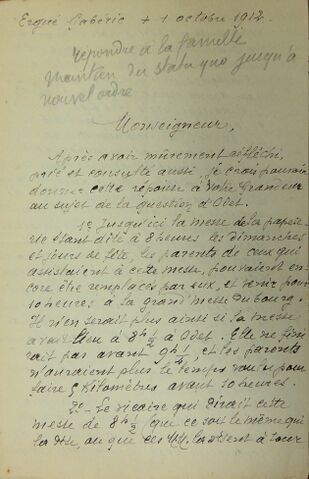 Ergué Gabéric + 1 octobre 1912.
répondre à la famille
maintien du statu quo jusqu'à
nouvel ordre
Monseigneur,
Après avoir mûrement réfléchi,
prié et consulté aussi, je crois pouvoir
donner cette réponse à Votre Grandeur
au sujet de la question d'Odet.
1º Jusqu'ici la messe de la papete-
rie étant dite à 8 heures les dimanches
et jours de fête, les parents de ceux qui
assistaient à cette messe, pouvaient en-
core être remplacés par eux, et venir pour
10 heures à la grand'messe du bourg.
Il n'en serait plus ainsi si la messe
avait lieu à 8h ½ à Odet. Elle ne fini-
rait pas avant 9h ¼, et les parents
n'auraient plus le temps voulu pour
faire 5 kilomètres avant 10 heures.
2º - Le vicaire qui dirait cette
messe de 8h ½ (que ce soit le même qui
la dise, ou que ces MM. la disent à tour